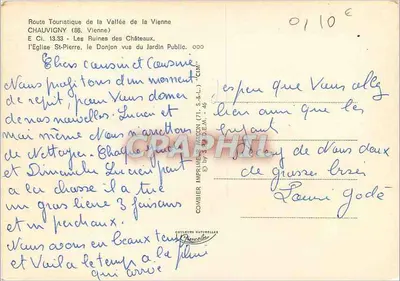 Route Touristique de la Vallée de la Vienne
CHAUVIGNY (86. Vienne)
E Ci. 13.53 - Les Ruines des Châteaux.
l'Eglise St-Pierre, le Donjon vu du Jardin Public. 000
0,10 €
Chers cousin et cousine
Nous profitons d'un moment
de répit, pour Vous donner
de nos nouvelles. Lucien et
moi même Nous n'arrêtons
de Nettoyer. Chaque
et Dimanche Lucien part
a la chasse il a tué
un gros lièvre 3 faisans
et un perdraux.
Nous avons en beaux temps
et Voila le temps a la pluie
qui arrive
espere que Vous allez
bien ainsi que les
enfant
de Nous deux
de grosses bises
Godé
COMBIER IMPRIMEUR MACON (71. S.-&-L.) "CIM"
GRAPHIL